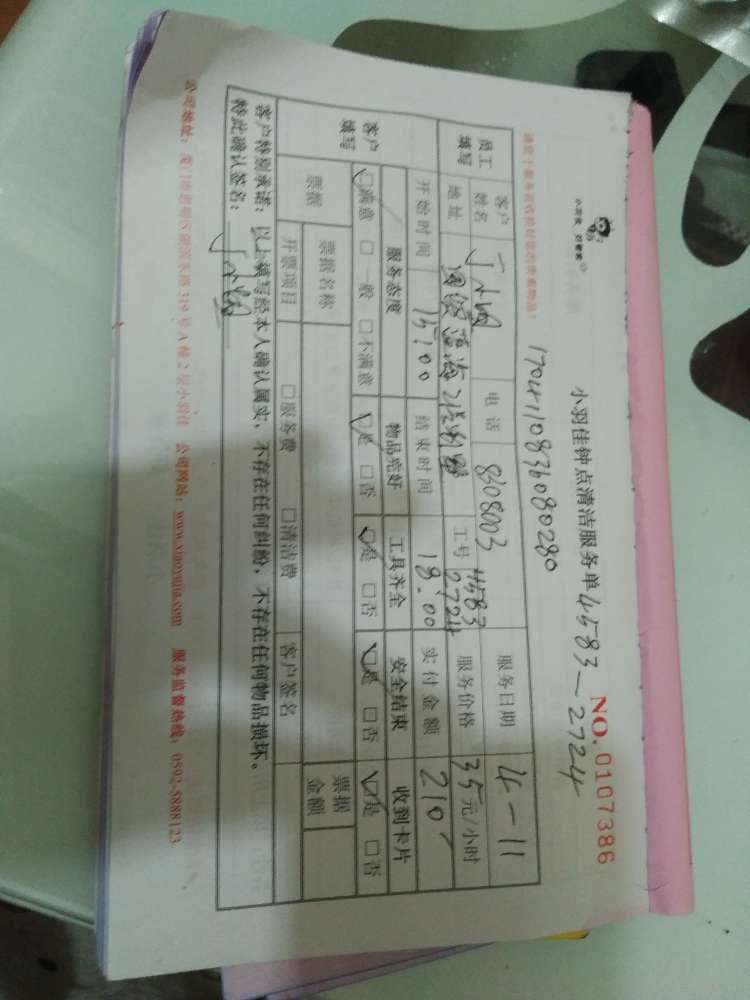 小羽佳 好管家
小羽佳钟点清洁服务单 4583-2724
NO. 0107386
请您于服务前收拾好您的贵重物品！
1704110836080280
员工填写 客户姓名 电话 8308003 服务日期 4-11
地址 工号 4583 2724 服务价格 35元/小时
开始时间 15:00 结束时间 18:00 实付金额 210
客户填写 服务态度 物品完好 工具齐全 安全结束 收到卡片
☑满意 □一般 □不满意 ☑是 □否 ☑是 □否 ☑是 □否 ☑是 □否
票据 票据名称 票据金额
开票项目 □服务费 □清洁费 客户签名
客户特别承诺：以上填写经本人确认属实，不存在任何纠纷，不存在任何物品损坏。
特此确认签名：
公司地址：厦门市思明区湖滨东路319号A幢2层小羽佳 公司网站：www.xiaoyujia.com 服务监督热线：0592-5888123